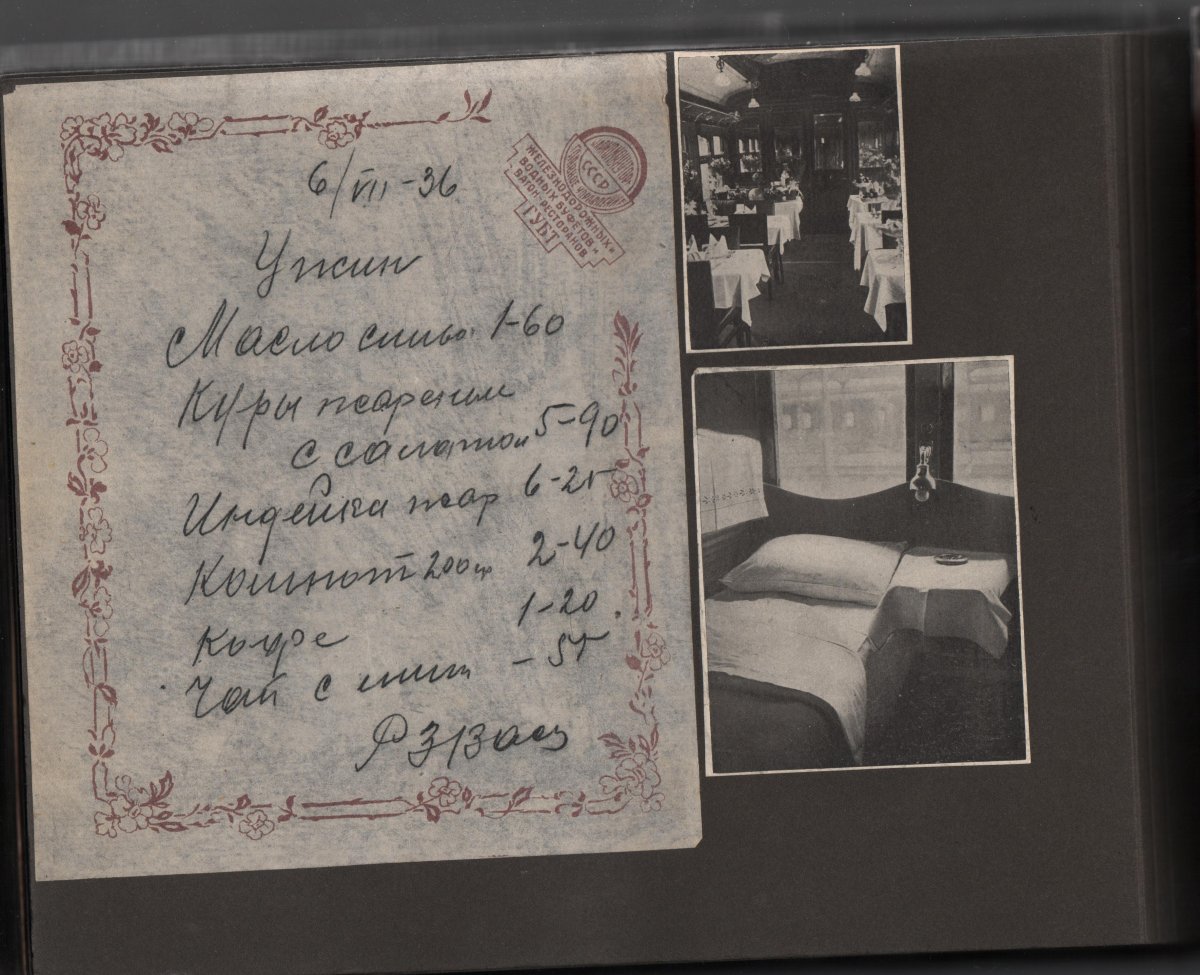 СССР
ЖЕЛЕЗНОДОРОЖНЫХ и
ВОДНЫХ БУФЕТОВ и
ВАГОН РЕСТОРАНОВ
ГУБТ
6/VII-36
Ужин
Масло слив. 1-60
Куры жареные
с салатом 5-90
Индейка жар 6-25
Компот 200 гр 2-40
Кофе 1-20
Чай с лим - 55